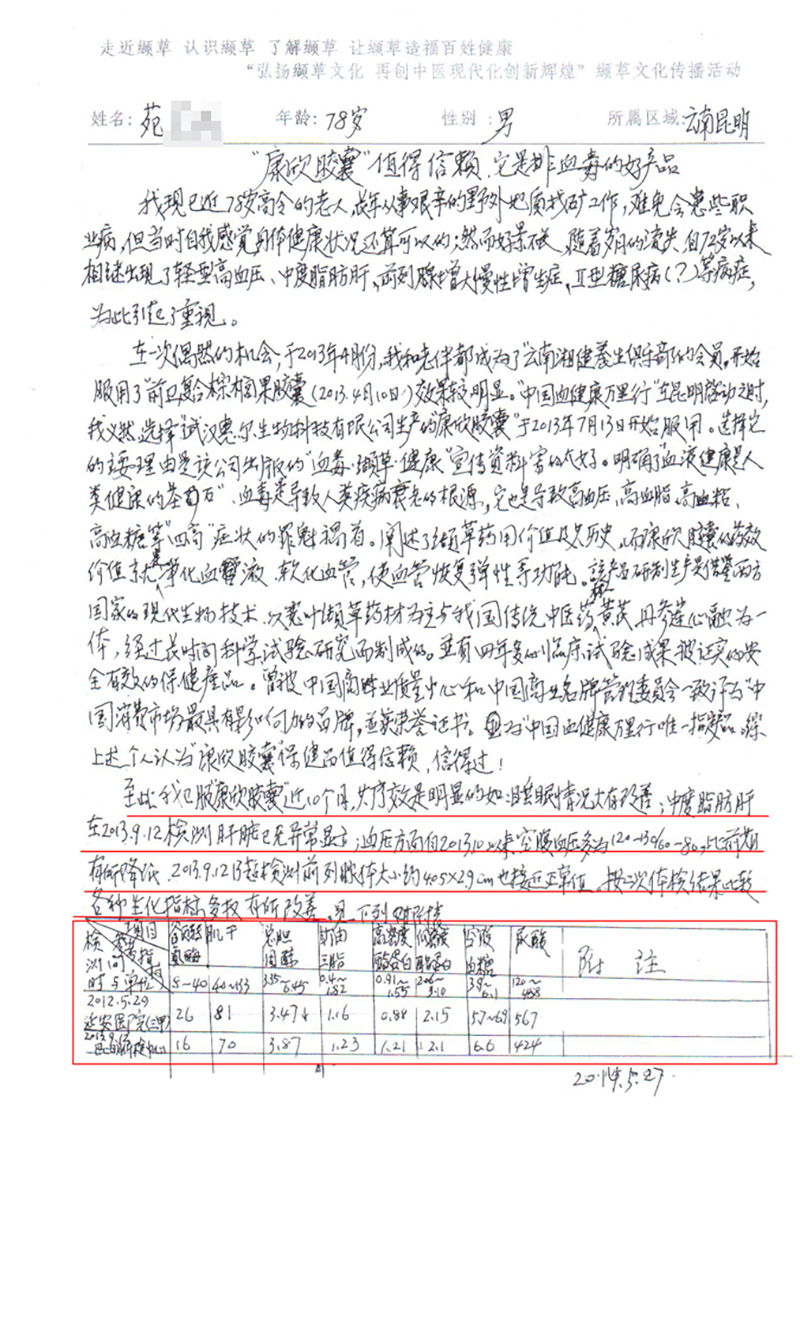 走近缬草 认识缬草 了解缬草 让缬草造福百姓健康
“弘扬缬草文化 再创中医现代化创新辉煌”缬草文化传播活动
姓名: 苑 年龄: 78岁 性别: 男 所属区域: 云南昆明
“康欣胶囊”值得信赖,它是排血毒的好产品
我现已近78岁高令的老人,长年从事艰辛的野外地质找矿工作,难免会患些职
业病,但当时自我感觉身体健康状况还算可以的;然而好景不长,随着岁月的流失,自72岁以来
相继出现了轻型高血压、中度脂肪肝、前列腺增大慢性增生症,Ⅱ型糖尿病(?)等病症,
为此引起了重视。
在一次偶然的机会,于2013年4月份,我和老伴都成为了“云南湘健养生俱乐部的会员,开始
服用了“前卫复合棕榈果胶囊(2013.4月10日)效果较明显。“中国血健康万里行”在昆明启动之时,
我义然选择“武汉惠尔生物科技有限公司生产的“康欣胶囊”于2013年7月13日开始服用。选择它
的主要理由是该公司出版的“血毒·缬草·健康”宣传资料写的太好。明确了“血液健康是人
类健康的基石”、血毒是导致人类疾病衰老的根源,它也是导致高血压、高血脂、高血粘、
高血糖等“四高”症状的罪魁祸首。阐述了缬草药用价值及历史,而康欣胶囊的药效
价值就是净化血液、软化血管,使血管恢复弹性等功能。该产品研制生产是借鉴西方
国家的现代生物技术,以宽叶缬草药材为主与我国传统中医药黄芪、丹参等心融为一
体,经过长时间科学试验研究而制成的。并有四年多的临床试验成果被证实的安
全有效的保健产品。曾被中国商业质量中心和中国商业名牌管理委员会一致评为“中
国消费市场最具有影响力的品牌,并获荣誉证书。且为“中国血健康万里行唯一指定品。综
上述个人认为“康欣胶囊”保健品值得信赖,信得过!
至此我已服“康欣胶囊”近10个月,其疗效是明显的如:睡眠情况大有改善;中度脂肪肝
在2013.9.12检测肝脏已无异常显示;血压方面自2013.10以来空腹血压多为120-13%60-80,比前期
有所降低,2013.9.12日超检测前列腺体大小约40.5×2.9cm也接近正常值。按二次体检结果比较
各种生化指标多数有所改善。见下列对比情
检测时间与单位 项目 谷丙转氨酶 肌干 总胆固醇 甘油三脂 高密度脂蛋白 低密度脂蛋白 空腹血糖 尿酸 附注
5-40 40~133 3.35~6.45 0.4~1.82 0.91~1.55 2.06~3.10 3.9~6.1 120~428
2012.5.29
延安医院(三甲) 26 81 3.47↓ 1.16 0.88 2.15 5.7~6.9 567
16 70 3.87 1.23 1.21 2.1 6.6 424
2014.5.27